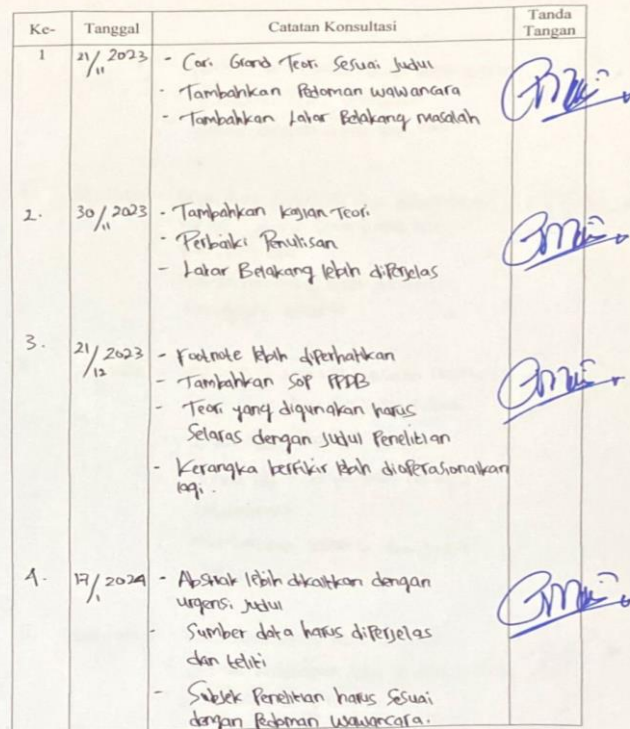 Ke- Tanggal Catatan Konsultasi Tanda Tangan
1 21/11 2023 - Cari Grand Teori Sesuai Judul
- Tambahkan Pedoman wawancara
- Tambahkan Latar Belakang masalah
2. 30/11 2023 - Tambahkan kajian Teori
- Perbaiki Penulisan
- Latar Belakang lebih diperjelas
3. 21/12 2023 - Footnote lebih diperhatikan
- Tambahkan SOP PPDB
- Teori yang digunakan harus
Selaras dengan Judul Penelitian
- Kerangka berfikir lebih dioperasionalkan
lagi.
4. 17/1 2024 - Abstrak lebih dikaitkan dengan
urgensi judul
- Sumber data harus diperjelas
dan teliti
- Subjek Penelitian harus Sesuai
dengan Pedoman wawancara.